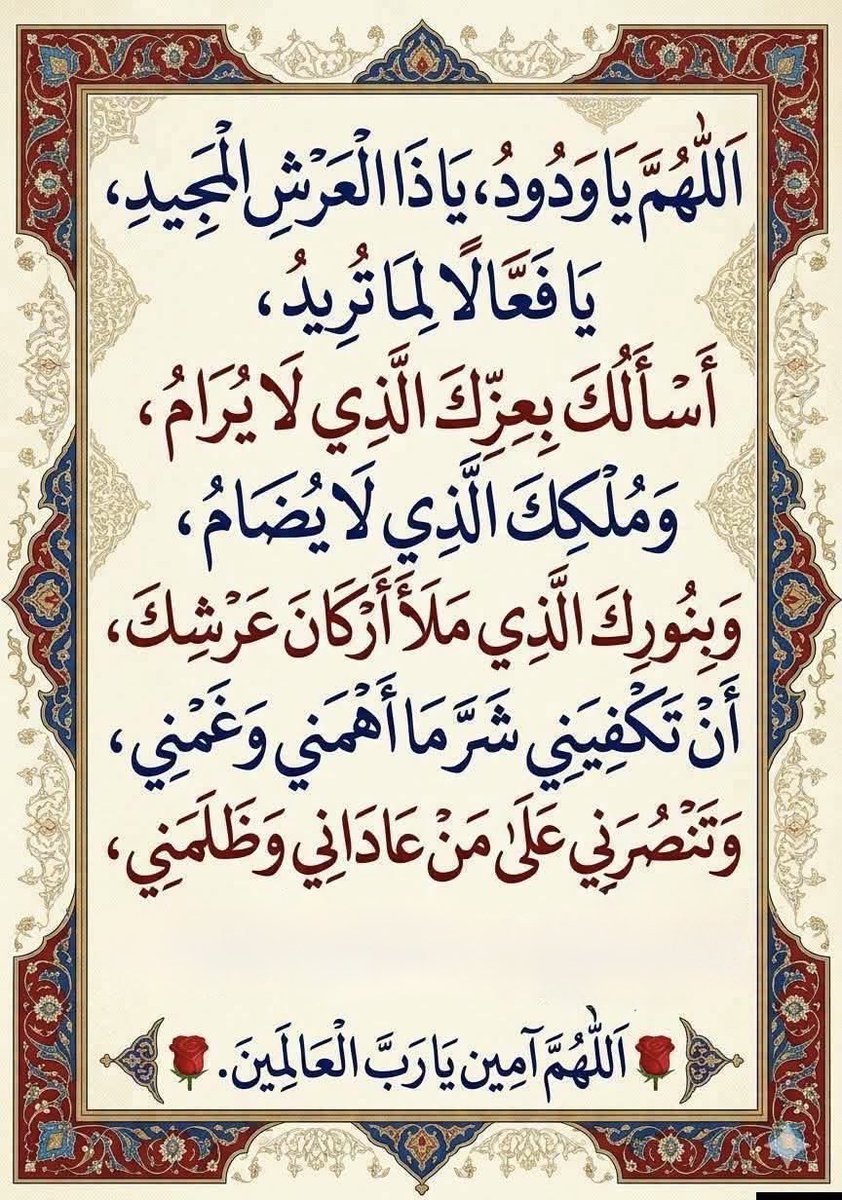 اَللّٰهُمَّ يَا وَدُودُ، يَا ذَا الْعَرْشِ الْمَجِيدِ،
يَا فَعَّالًا لِمَا تُرِيدُ،
أَسْأَلُكَ بِعِزِّكَ الَّذِي لَا يُرَامُ،
وَمُلْكِكَ الَّذِي لَا يُضَامُ،
وَبِنُورِكَ الَّذِي مَلَأَ أَرْكَانَ عَرْشِكَ،
أَنْ تَكْفِيَنِي شَرَّ مَا أَهْمَنِي وَغَمْنِي،
وَتَنْصُرَنِي عَلَىٰ مَنْ عَادَانِي وَظَلَمَنِي،
🌹اَللّٰهُمَّ آمِين يَا رَبَّ الْعَالَمِينَ.🌹